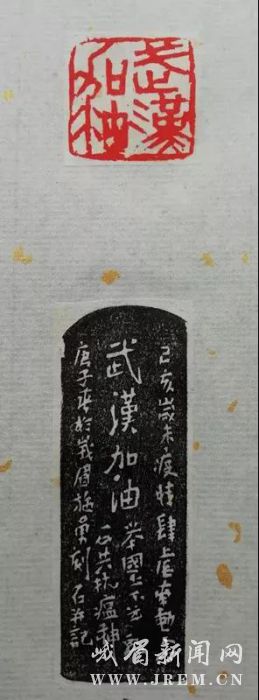 武漢
加油
己亥歲末疫情肆虐
武漢加油
舉國上下
共抗瘟神
庚子春於峨眉施勇刻石并記
峨眉新闻网
WWW.JREM.CN